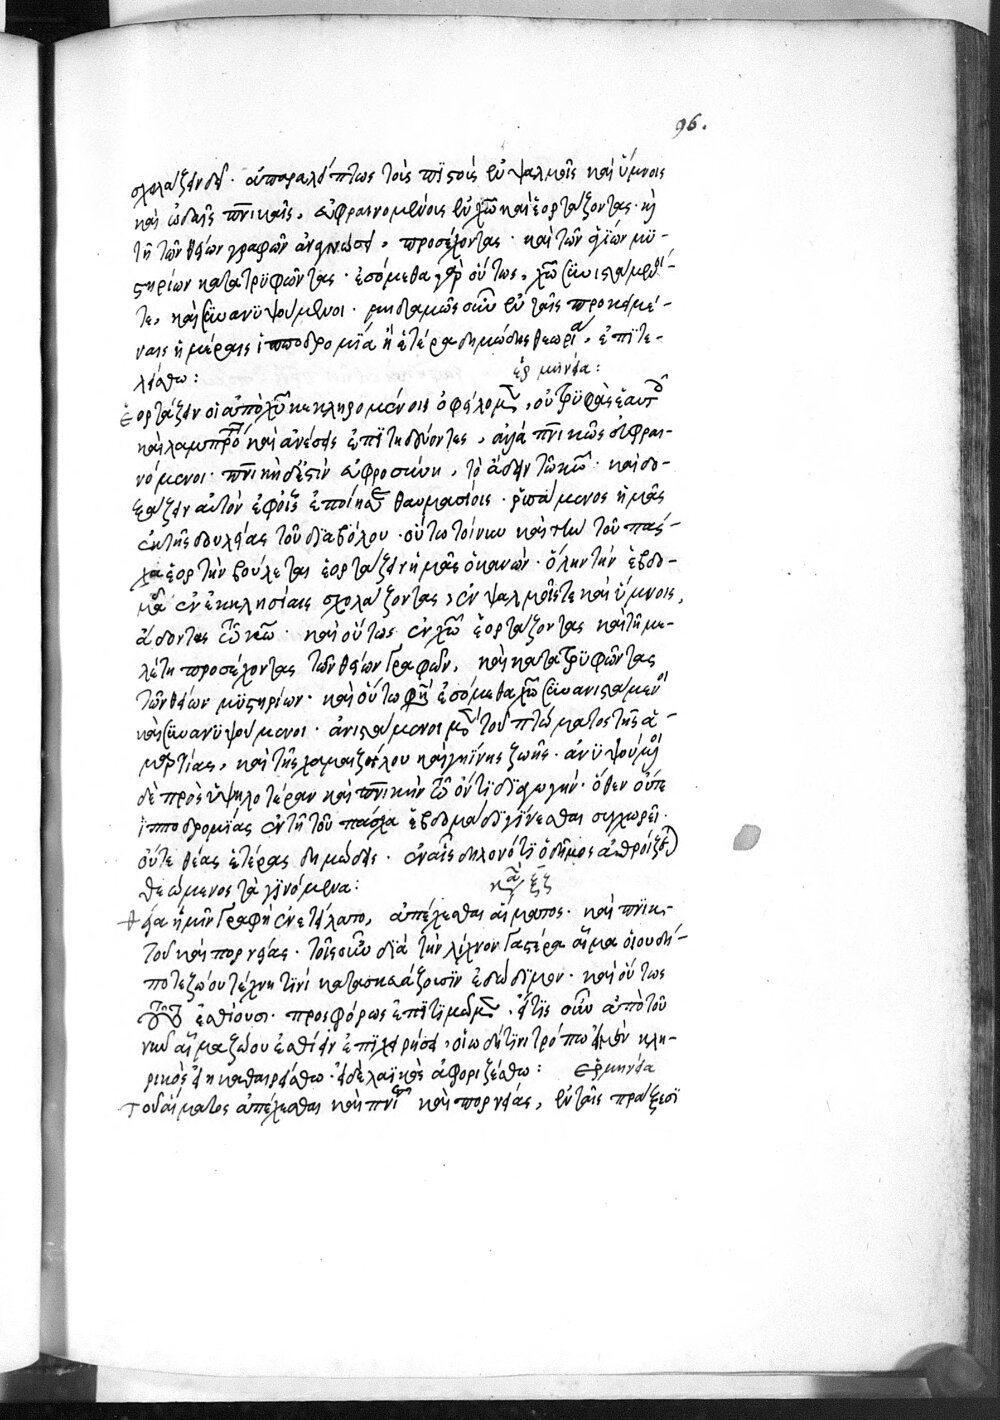 96.
σχολάζειν δεῖ· ἀπαραλείπτως τοὺς πιστοὺς ἐν ψαλμοῖς καὶ ὕμνοις
καὶ ὠδαῖς πνικαῖς, εὐφραινομένους ἐν χῶ καὶ ἑορτάζοντας· κὶ
τῆ τῶν θείων γραφῶν ἀναγνώσει, προσέχοντας· καὶ τῶν ἁγίων μυ-
στηρίων κατατρυφῶντας· ἐσόμεθα γὰρ οὕτως, χῶ συνιστάμενοί-
τε, καὶ συνανυψούμενοι· μηδαμῶς οὖν ἐν ταῖς προκειμέ-
ναις ἡμέραις ἱπποδρομία ἢ ἑτέρα δημώδης θεωρία, ἐπιτε-
λείσθω:
ἑρμηνεία:
Ἑορτάζειν οἱ ἀπὸ χῦ κεκληρομένοι ὀφείλομεν, οὐ τρυφὰς ἑαυτοῖς
καὶ λαμπρὸ καὶ ἀνέσεις ἐπιτηδεύοντες, ἀλλὰ πνικῶς εὐφραι-
νόμενοι· πνικὴ δέ ἐστιν εὐφροσύνη, τὸ ἄδειν τῶ κῶ· καὶ δο-
ξάζειν αὐτὸν ἐφ' οἷς ἐποίησε θαυμασίοις· ῥυσάμενος ἡμᾶς
ἐκ τῆς δουλείας τοῦ διαβόλου· οὕτω τοίνυν καὶ τὴν τοῦ πάσ-
χα ἑορτὴν βούλεται ἑορτάζειν ἡμᾶς ὁ κανών· ὅλην τὴν ἑβδο-
μάδα ἐν ἐκκλησίαις σχολάζοντας, ἐν ψαλμοῖς τε καὶ ὕμνοις,
ἄδοντας τῶ κῶ· καὶ οὕτως ἐν χῶ ἑορτάζοντας καὶ τῆ με-
λέτη προσέχοντας τῶν θείων γραφῶν, καὶ κατατρυφῶντας
τῶν θείων μυστηρίων· καὶ οὕτω φησὶ ἐσόμεθα χῶ συνανιστάμενοι
καὶ συνανυψούμενοι· ἀνιστάμενοι μὲν τοῦ πτώματος τῆς ἁ-
μαρτίας, καὶ τῆς χαμαιζήλου καὶ γηίνης ζωῆς· ἀνυψούμενοι
δὲ πρὸς ὑψηλοτέραν καὶ πνικὴν τῶ ὄντι διαγωγήν· ὅθεν οὔτε
ἱπποδρομίας ἐν τῆ τοῦ πάσχα ἑβδομάδι γίνεσθαι συγχωρεῖ·
οὔτε θέας ἑτέρας δημώδεις· ἐν αἷς δηλονότι ὁ δῆμος ἀθροίζεται
θεώμενος τὰ γινόμενα:
κα ξζ
Θεία ἡμῖν γραφὴ ἐνετείλατο, ἀπέχεσθαι αἵματος· καὶ πνικ-
τοῦ καὶ πορνείας· τοῖς οὖν διὰ τὴν λίχνον γαστέρα αἷμα οἱουδή-
ποτε ζώου τέχνη τινὶ κατασκευάζουσιν ἐδώδιμον· καὶ οὕτως
τοῦτο ἐσθίουσι· προσφόρως ἐπιτιμῶμεν· εἴτις οὖν ἀπὸ τοῦ
νῦν αἷμα ζώου ἐσθίειν ἐπιχειρήσει, οἱωδήτινι τρόπω εἰ μὲν κλη-
ρικὸς εἴη καθαιρείσθω· εἰ δὲ λαϊκὸς ἀφοριζέσθω: Ἑρμηνεία
Τοῦ αἵματος ἀπέχεσθαι καὶ πνικτοῦ καὶ πορνείας, ἐν ταῖς πράξεσι